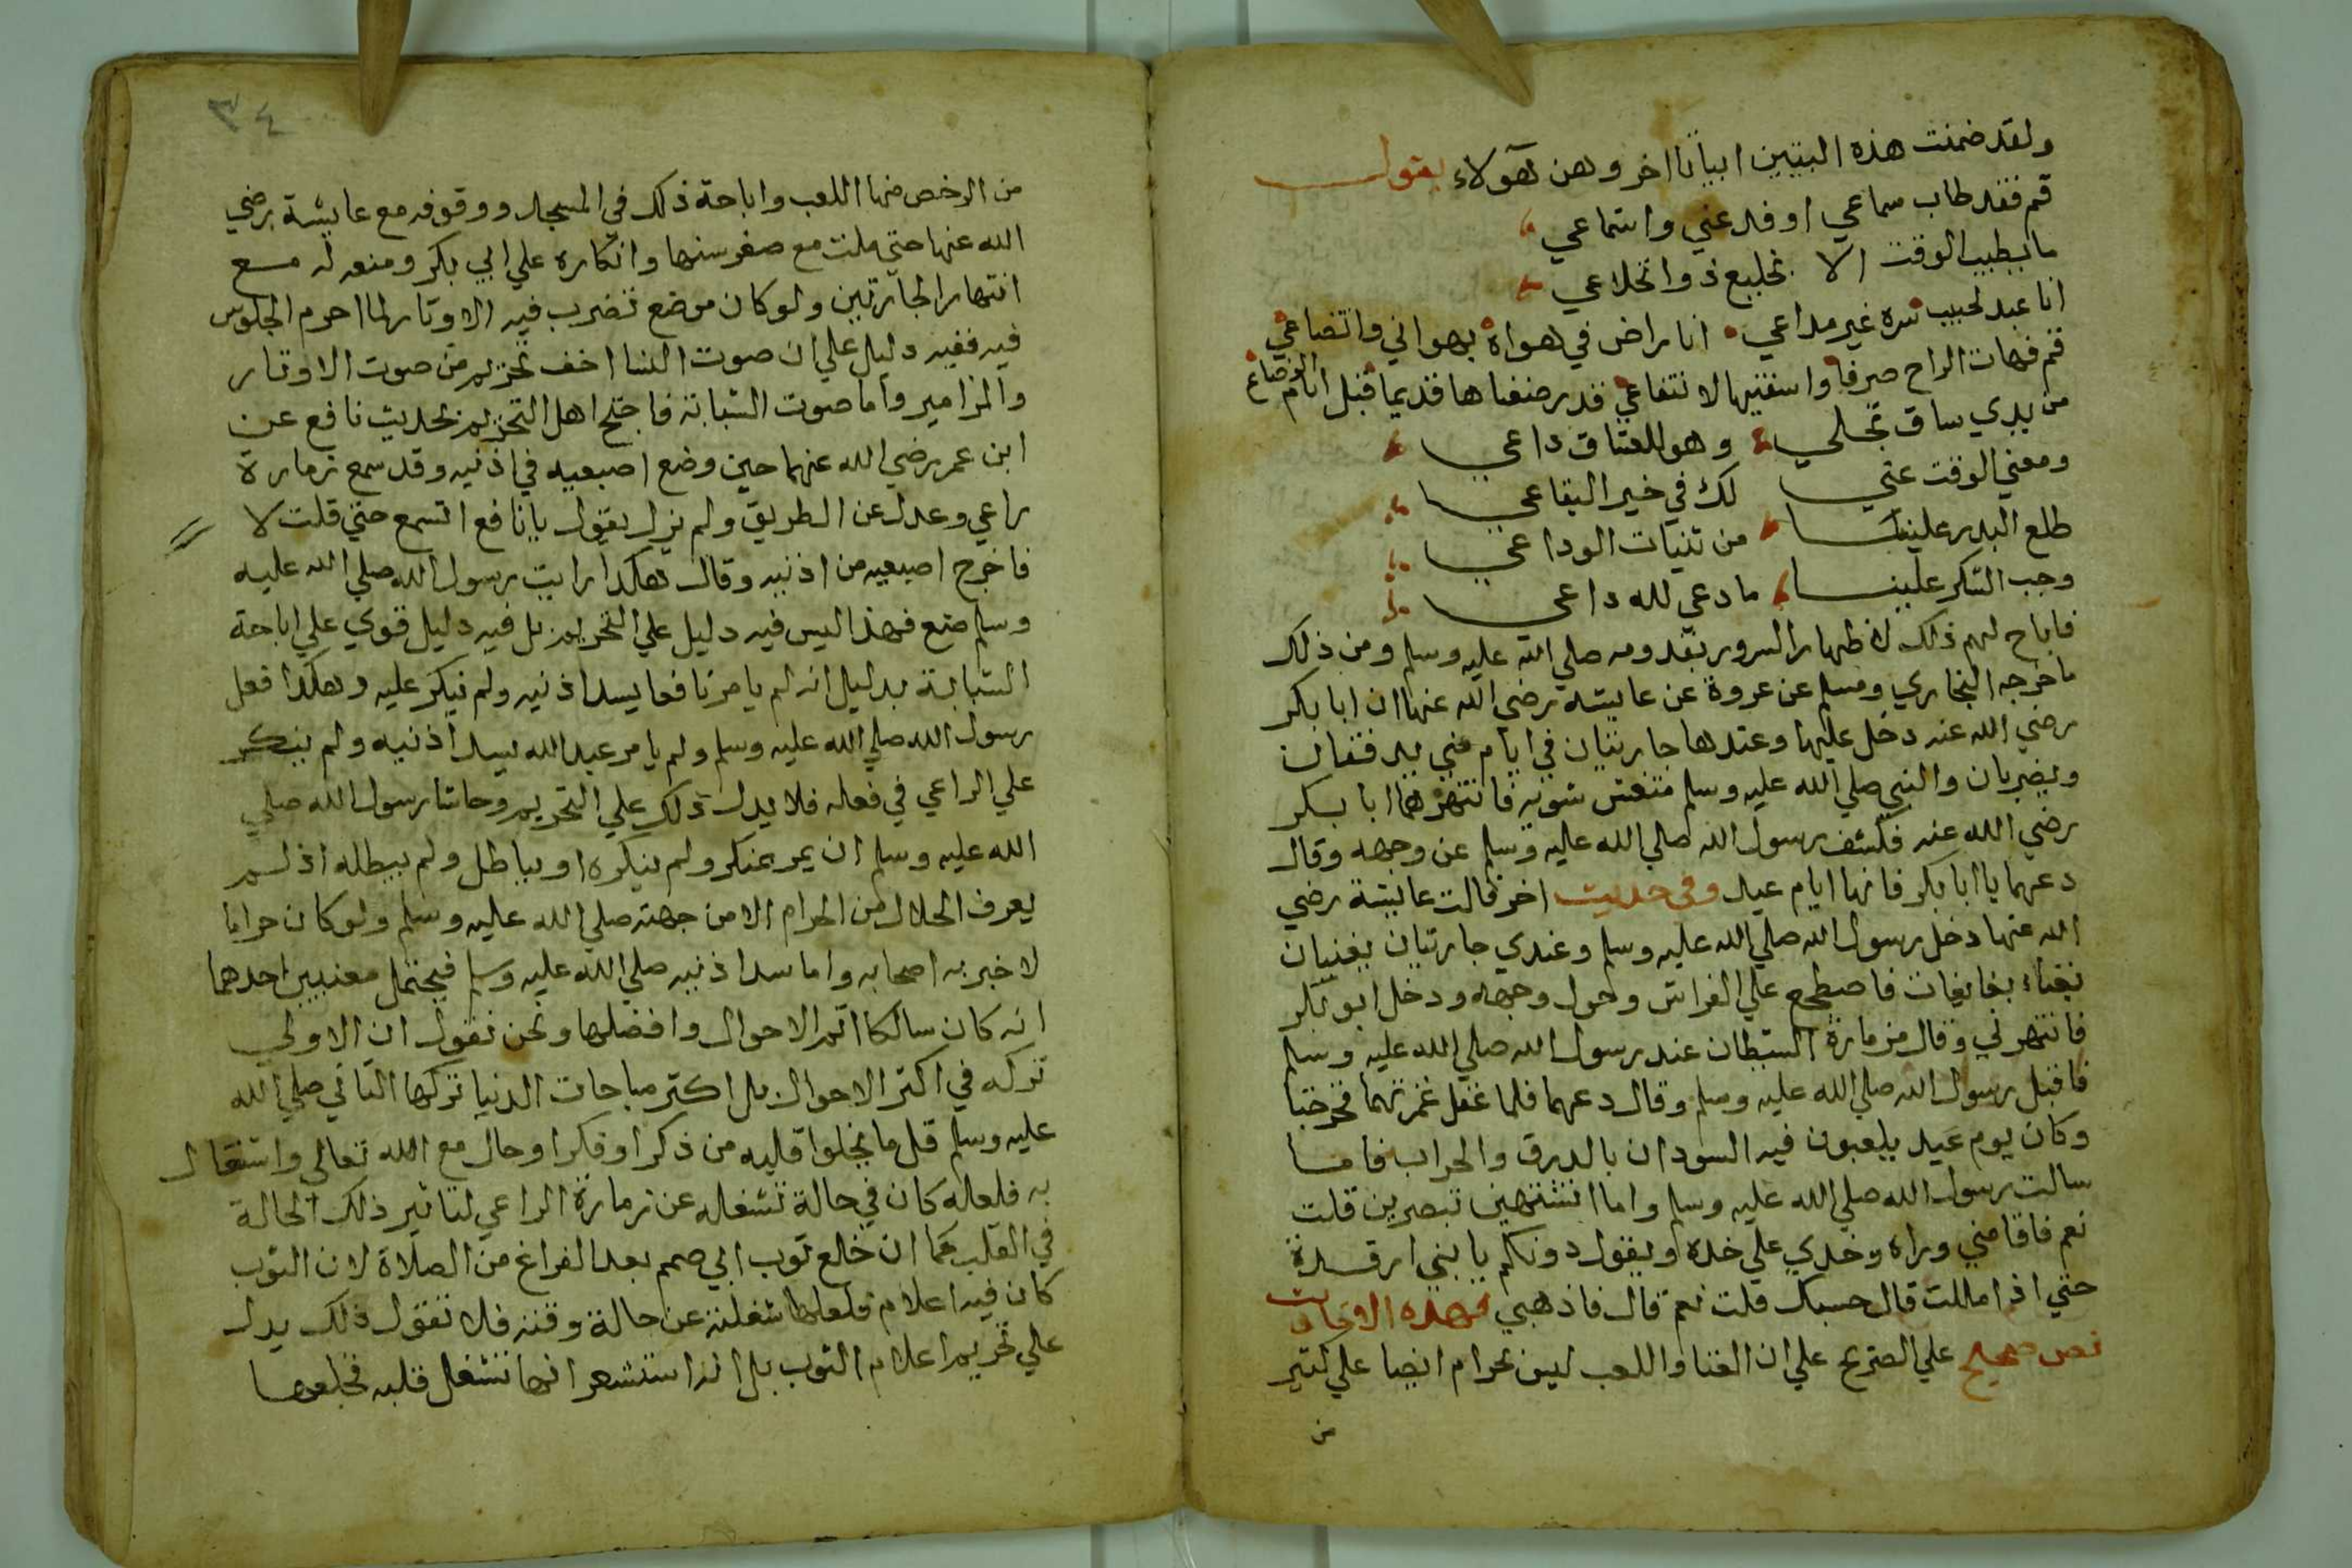 ولقد ضمنت هذه البيتين ابياتا اخر وهن هولاء يقول
قم فقد طاب سماعي او فدعني واستماعي
ما يطيب الوقت الا بخليع ذو انخلاعي
انا عبد لحبيب سره غير مداعي انا راض في هواه بهواني واتضاعي
قم فهات الراح صرفا واسقنيها لانتفاعي قد رضعناها قديما قبل ايام الرضاع
من يدي ساق تجلي وهو للعشاق داعي
ومغني الوقت غني لك في خير البقاعي
طلع البدر علينا من ثنيات الوداعي
وجب الشكر علينا ما دعي لله داعي
فاباح لهم ذلك لاظهار السرور بقدومه صلي الله عليه وسلم ومن ذلك
ما خرجه البخاري ومسلم عن عروة عن عايشه رضي الله عنها ان ابا بكر
رضي الله عنه دخل عليها وعندها جاريتان في ايام مني يدففان
ويضربان والنبي صلي الله عليه وسلم متغش بثوبه فانتهرهما ابا بكر
رضي الله عنه فكشف رسول الله صلي الله عليه وسلم عن وجهه وقال
دعهما يا ابا بكر فانها ايام عيد وفي حديث اخر قالت عايشة رضي
الله عنها دخل رسول الله صلي الله عليه وسلم وعندي جاريتان يغنيان
بغناء فاضطجع علي الفراش وحول وجهه ودخل ابو بكر
فانتهرني وقال مزمارة الشيطان عند رسول الله صلي الله عليه وسلم
فاقبل رسول الله صلي الله عليه وسلم وقال دعهما فلما غفل غمزتهما فخرجتا
وكان يوم عيد يلعبون فيه السودان بالدرق والحراب فاما
سالت رسول الله صلي الله عليه وسلم واما اتشتهين تبصرين قلت
نعم فاقامني وراه وخدي علي خده ويقول دونكم يا بني ارفدة
حتي اذا مللت قال حسبك قلت نعم قال فاذهبي فهذه الاحاديث
نص صحيح علي الصريح علي ان الغنا واللعب ليس بحرام ايضا علي كثير
من
٣٤
من الرخص منها اللعب واباحة ذلك في المسجد ووقوفه مع عايشة رضي
الله عنها حتي ملت مع صغر سنها وانكاره علي ابي بكر ومنعه له مع
انتهار الجاريتين ولو كان موضع تضرب فيه الاوتار لما احرم الجلوس
فيه ففيه دليل علي ان صوت النسا اخف تحريم من صوت الاوتار
والمزامير واما صوت الشبابة فاحتج اهل التحريم بحديث نافع عن
ابن عمر رضي الله عنهما حين وضع اصبعيه في اذنيه وقد سمع زمارة
راعي وعدل عن الطريق ولم يزل يقول يا نافع اتسمع حتي قلت لا
فاخرج اصبعيه من اذنيه وقال هكذا رايت رسول الله صلي الله عليه
وسلم صنع فهذا ليس فيه دليل علي التحريم بل فيه دليل قوي علي اباحة
الشبابة بدليل انه لم يامر نافعا يسد اذنيه ولم ينكر عليه وهكذا فعل
رسول الله صلي الله عليه وسلم ولم يامر عبد الله يسد اذنيه ولم ينكر
علي الراعي في فعله فلا يدل ذلك علي التحريم وحاشا رسول الله صلي
الله عليه وسلم ان يمر بمنكر ولم ينكره او بباطل ولم يبطله اذ لم
يعرف الحلال من الحرام الا من جهته صلي الله عليه وسلم ولو كان حراما
لاخبر به اصحابه واما سد اذنيه صلي الله عليه وسلم فيحتمل معنيين احدهما
انه كان سالكا اتم الاحوال وافضلها ونحن نقول ان الاولي
تركه في اكثر الاحوال بل اكثر مباحات الدنيا تركها الثاني صلي الله
عليه وسلم قل ما يخلوا قلبه من ذكر او فكر او حال مع الله تعالي واشتغال
به فلعله كان في حالة تشغله عن زمارة الراعي لتاثير ذلك الحالة
في القلب كما ان خلع ثوب ابي صمم بعد الفراغ من الصلاة لان الثوب
كان فيه اعلام فلعلها شغلته عن حالة وقته فلا تقول ذلك يدل
علي تحريم اعلام الثوب بل انه استشعر انها تشغل قلبه فخلعها